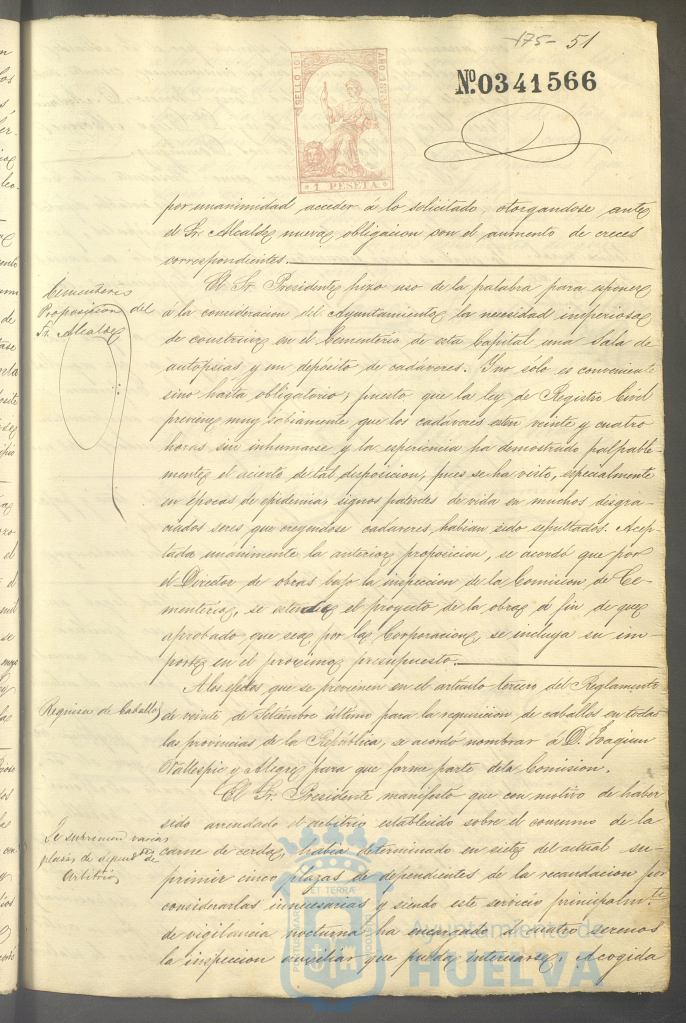 175- 51
SELLO 10º AÑO
1 PESETA
Nº 0341566
por unanimidad acceder á lo solicitado, otorgandose ante
el Sr. Alcalde nueva obligacion con el aumento de creces
correspondientes.
Cementerio
Proposicion del
Sr. Alcalde
El Sr. Presidente hizo uso de la palabra para esponer
á la consideracion del Ayuntamiento la necesidad imperiosa
de construir en el Cementerio de esta Capital una Sala de
autopsias y un depósito de cadáveres. Y no sólo es conveniente
sino hasta obligatorio, puesto que la ley de Registro Civil
previene muy sabiamente, que los cadáveres esten veinte y cuatro
horas sin inhumarse y la esperiencia ha demostrado palpable-
mente el acierto de tal disposicion, pues se ha visto, especialmente
en épocas de epidemia, signos patentes de vida en muchos desgra-
ciados seres que creyendose cadáveres, habian sido sepultados. Acep-
tada unanimente la anterior proposicion, se acordó que por
el Director de obras bajo la inspeccion de la Comision de Ce-
menterios, se estendiese el proyecto de la obra á fin de que
aprobado que sea por la Corporacion, se incluya su im-
porte en el proximo presupuesto.
Requisa de Caballos
A los efectos que se previenen en el artículo tercero del Reglamento
de veinte de Setiembre último para la requisicion de caballos en todas
las provincias de la República, se acordó nombrar á D. Joaquin
Vallespin y Alegre para que forme parte dela Comision.
Se suprimen varias
plazas de depend.tes de
Arbitrios
El Sr. Presidente manifestó que con motivo de haber
sido arrendado el arbitrio establecido sobre el consumo de la
carne de cerda, habia determinado en siete del actual su-
primir cinco plazas de dependientes de la recaudacion por
considerarlas innecesarias y siendo este servicio principalm.te
de vigilancia nocturna ha encargado á cuatro serenos
la inspeccion auxiliar que pueda interesarse. Acogida
PORTUS MARIS ET TERRAE CUSTODIA
Ayuntamiento de
HUELVA